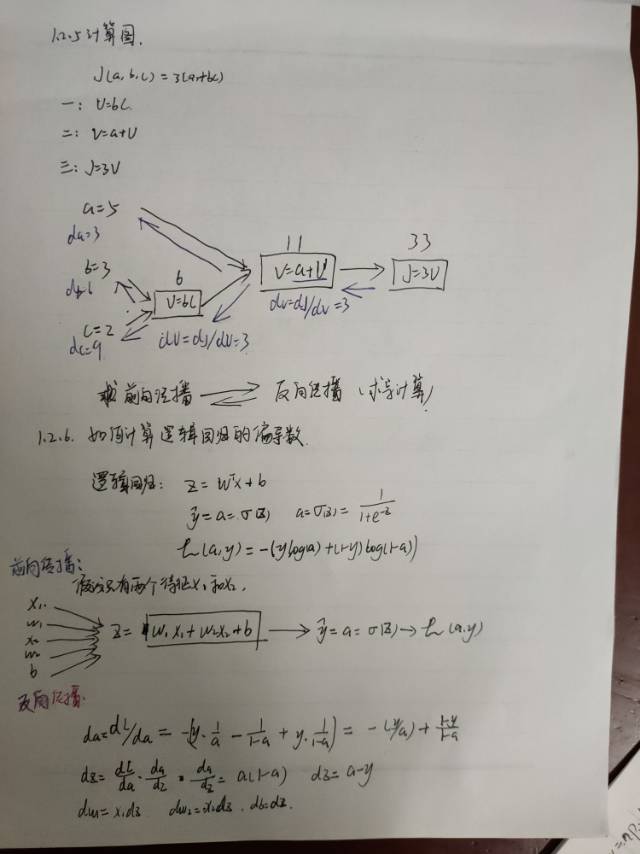 1.2.5 计算图.
J(a,b,c) = 3(a+bc)
一: U=bc
二: V=a+U
三: J=3V
a=5
da=3
11
33
b=3
6
V=a+U
J=3V
db=6
U=bc
dv=dJ/dv=3
c=2
dc=9
dU=dJ/dU=3
前向传播 反向传播 (求导计算)
1.2.6. 如何计算逻辑回归的偏导数.
逻辑回归: z = wᵀx + b
ŷ = a = σ(z) a=σ(z) = 1/(1+e^-z)
L(a,y) = -(ylog(a) + (1-y)log(1-a))
前向传播:
假设只有两个特征x₁和x₂.
x₁
w₁
x₂
w₂
b
z = w₁x₁ + w₂x₂ + b → ŷ = a = σ(z) → L(a,y)
反向传播.
da = dL/da = -(y·1/a - 1/(1-a) + y·1/(1-a)) = -(y/a) + (1-y)/(1-a)
dz = dL/da · da/dz · da/dz = a(1-a) dz = a-y
dw₁ = x₁dz dw₂ = x₂dz . db = dz.